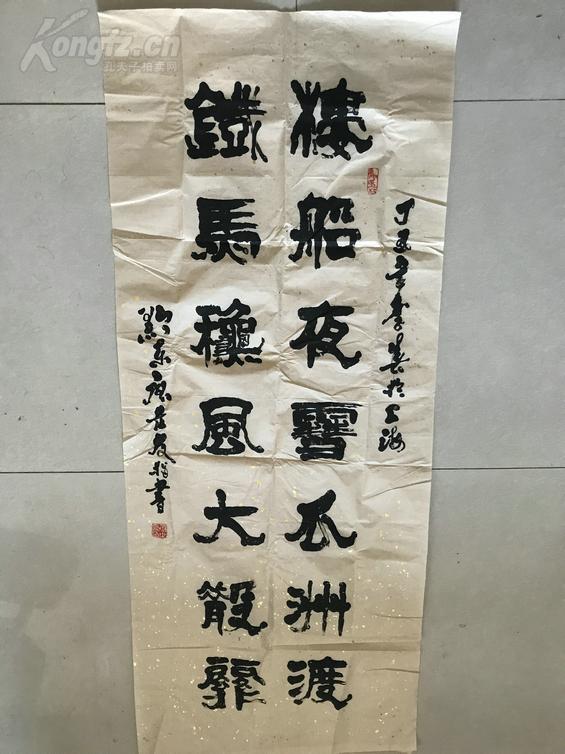 Kongfz.cn
孔夫子拍卖网
丁亥年季春於上海
樓船夜雪瓜洲渡
鐵馬龝風大散關
黔東書